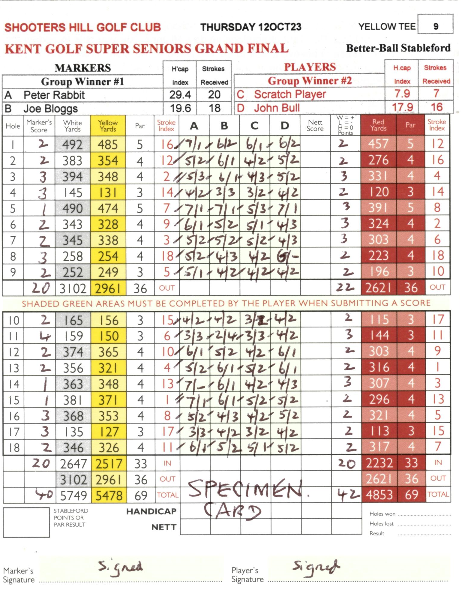 SHOOTERS HILL GOLF CLUB THURSDAY 12OCT23 YELLOW TEE 9
KENT GOLF SUPER SENIORS GRAND FINAL Better-Ball Stableford
MARKERS H'cap Strokes PLAYERS H.cap Strokes
Group Winner #1 Index Received Group Winner #2 Index Received
A Peter Rabbit 29.4 20 C Scratch Player 7.9 7
B Joe Bloggs 19.6 18 D John Bull 17.9 16
Hole Marker's Score White Yards Yellow Yards Par Stroke Index A B C D Nett Score W = + L = - H = 0 Points Red Yards Par Stroke Index
1 2 492 485 5 16 7/1 6/2 6/1 6/2 2 457 5 12
2 2 383 354 4 12 5/2 6/1 4/2 5/2 2 276 4 16
3 3 394 348 4 2 5/3 6/1 4/3 5/2 3 331 4 4
4 3 145 131 3 14 4/2 3/3 3/2 4/2 2 120 3 14
5 1 490 474 5 7 7/1 7/1 5/3 7/1 3 391 5 8
6 2 343 328 4 9 6/1 5/2 5/1 4/3 3 324 4 2
7 2 345 338 4 3 5/2 5/2 5/2 4/3 3 303 4 6
8 3 258 254 4 18 5/2 4/3 4/2 6/- 2 223 4 18
9 2 252 249 3 5 5/1 4/2 4/2 4/2 2 196 3 10
20 3102 2961 36 OUT 22 2621 36 OUT
SHADED GREEN AREAS MUST BE COMPLETED BY THE PLAYER WHEN SUBMITTING A SCORE
10 2 165 156 3 15 4/2 4/2 4/2 2 115 3 17
11 4 159 150 3 6 3/3 2/4 3/3 4/2 3 144 3 11
12 2 374 365 4 10 6/1 5/2 4/2 6/1 2 303 4 9
13 2 356 321 4 4 5/2 6/1 5/2 6/1 2 316 4 1
14 1 363 348 4 13 7/- 6/1 4/2 4/3 3 307 4 3
15 1 381 371 4 1 7/1 6/1 5/2 5/2 2 296 4 13
16 3 368 353 4 8 5/2 4/3 4/2 5/2 2 321 4 5
17 3 135 127 3 17 3/3 4/2 3/2 4/2 2 113 3 15
18 2 346 326 4 11 6/1 5/2 5/1 5/2 2 317 4 7
20 2647 2517 33 IN 20 2232 33 IN
3102 2961 36 OUT 2621 36 OUT
40 5749 5478 69 TOTAL SPECIMEN. 42 4853 69 TOTAL
STABLEFORD POINTS OR PAR RESULT HANDICAP CARD Holes won
NETT Holes lost
Result
Marker's Signature Signed Player's Signature Signed